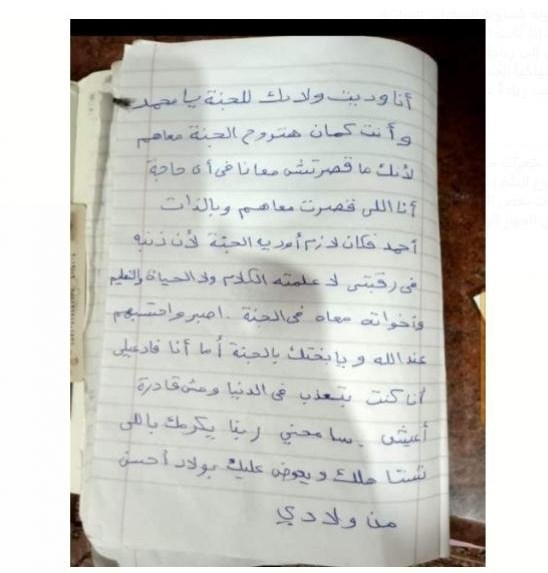 أنا وديت ولادك للجنة يا محمد
وأنت كمان هتروح الجنة معاهم
لأنك ما قصرتش معانا في أي حاجة
أنا اللي قصرت معاهم وبالذات
أحمد فكان لازم أوديه الجنة لأن ذنبه
في رقبتي لا علمته الكلام ولا الحياة والتعليم
وأخواته معاه في الجنة . اصبر واحتسبهم
عند الله ويا بختك بالجنة أما أنا فادعيلي
أنا كنت بتعذب في الدنيا ومش قادرة
أعيش . سامحني ربنا يكرمك باللي
تستاهلك ويعوض عليك بولاد أحسن
من ولادي